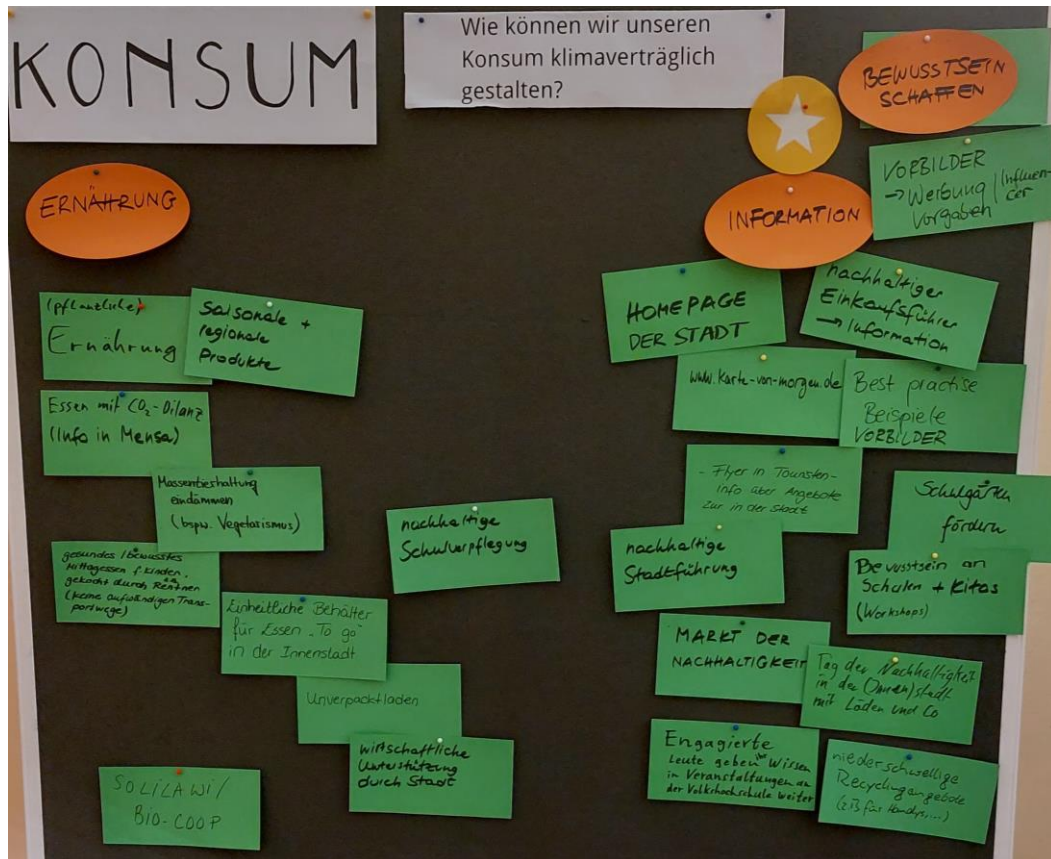 KONSUM
Wie können wir unseren
Konsum klimaverträglich
gestalten?
BEWUSSTSEIN
SCHAFFEN
VORBILDER
→ Werbung / Influen-
cer
Vorgaben
ERNÄHRUNG
INFORMATION
(pflanzliche)
Ernährung
Saisonale +
regionale
Produkte
Essen mit CO₂-Bilanz
(Info in Mensa)
Massentierhaltung
eindämmen
(bspw. Vegetarismus)
gesundes / bewusstes
Mittagessen f. Kinder,
gekocht durch Rentner
(keine aufwändigen Trans-
portwege)
Einheitliche Behälter
für Essen „To go"
in der Innenstadt
Unverpacktladen
wirtschaftliche
Unterstützung
durch Stadt
SOLILAWI/
BIO-COOP
nachhaltige
Schulverpflegung
HOMEPAGE
DER STADT
nachhaltiger
Einkaufsführer
→ Information
www.karte-von-morgen.de
Best practise
Beispiele
VORBILDER
- Flyer in Touristen-
info über Angebote
zur in der Stadt
Schulgärten
fördern
nachhaltige
Stadtführung
Bewusstsein an
Schulen + Kitas
(Workshops)
MARKT DER
NACHHALTIGKEIT
Tag der Nachhaltigkeit
in der (Innen)stadt
mit Läden und Co
Engagierte
Leute geben ihr Wissen
in Veranstaltungen an
der Volkshochschule weiter
niederschwellige
Recyclingangebote
(zB für Handys,...)